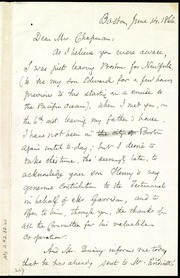 Boston, June 14, 1866.
Dear Mrs. Chapman:
As I believe you were aware,
I was just leaving Boston for Norfolk
(to see my son Edward for a few hours
previous to his starting on a cruise to
the Pacific Ocean), when I met you, on
the 6th inst. leaving my father's house.
I have not seen in the city of Boston
again until to-day; but I desire to
take this time, tho' seemingly late, to
acknowledge your son Henry's very
generous contribution to the Testimonial
in behalf of Mr. Garrison, and to
offer to him, through you, the thanks for
all the Committee for his valuable
co-operation.
And Mr. Quincy informs me today
that he has already sent to Mr.